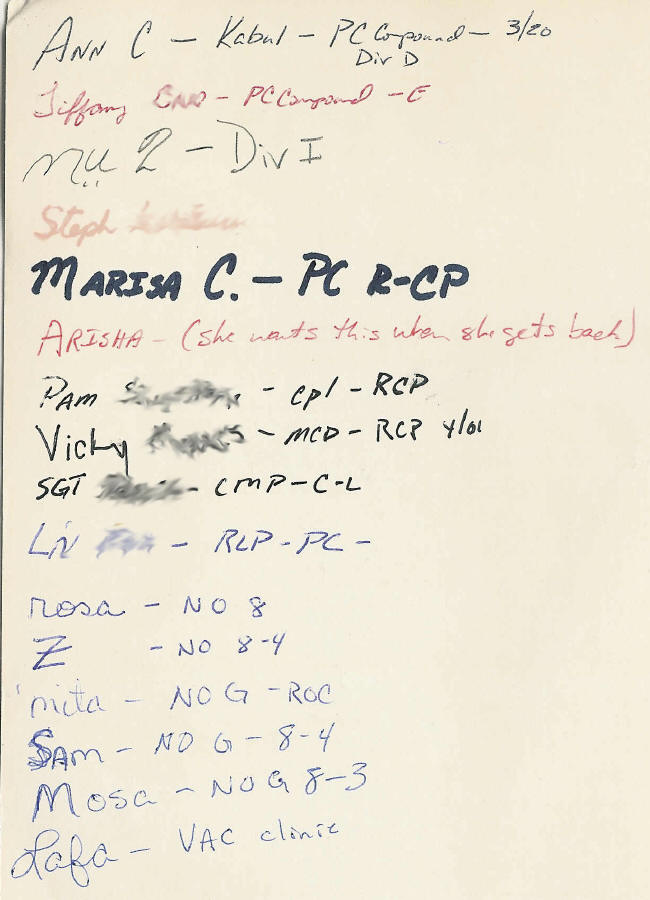 ANN C - Kabul - PC Compound - 3/20
Div D
Tiffany - PC Compound - E
2 - Div I
Steph
MARISA C. - PC R-CP
ARISHA - (she wants this when she gets back)
PAM - cpl - RCP
Vicky - MCD - RCP 4/01
SGT - CMP-C-L
LIV - RLP-PC -
rosa - NO 8
Z - NO 8-4
nita - NO G - ROC
SAM - NO G - 8-4
Mosa - NO G 8-3
Lafa - VAC clinic